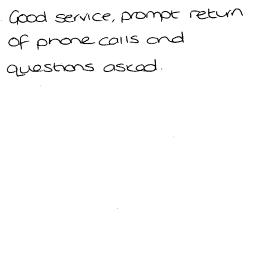 Good service, prompt return
of phone calls and
questions asked.